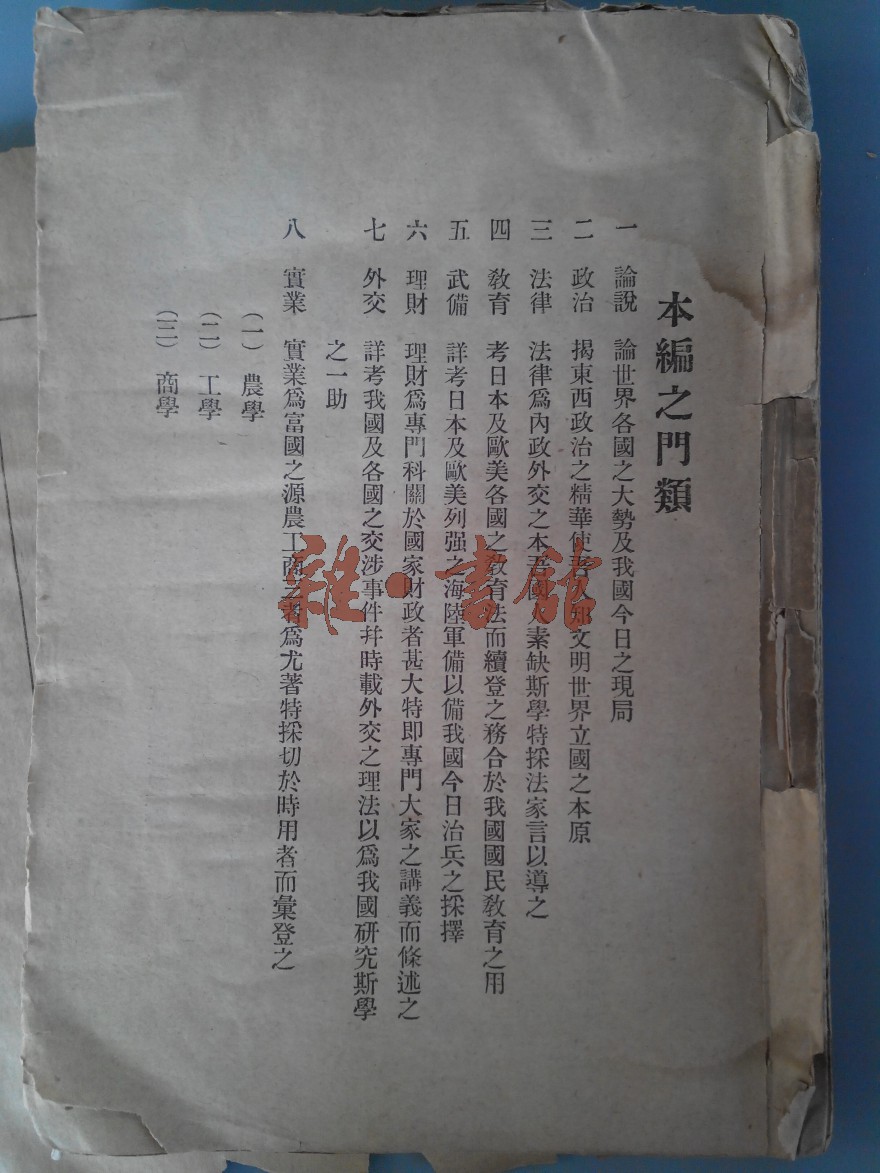 本編之門類
一 論說 論世界各國之大勢及我國今日之現局
二 政治 揭東西政治之精華使吾人知文明世界立國之本原
三 法律 法律爲內政外交之本吾國人素缺斯學特採法家言以導之
四 敎育 考日本及歐美各國之敎育法而續登之務合於我國國民敎育之用
五 武備 詳考日本及歐美列强之海陸軍備以備我國今日治兵之採擇
六 理財 理財爲專門科關於國家財政者甚大特即專門大家之講義而條述之
七 外交 詳考我國及各國之交涉事件幷時載外交之理法以爲我國研究斯學
之一助
八 實業 實業爲富國之源農工商之者爲尤著特採切於時用者而彙登之
（一） 農學
（二） 工學
（三） 商學
雜·書館